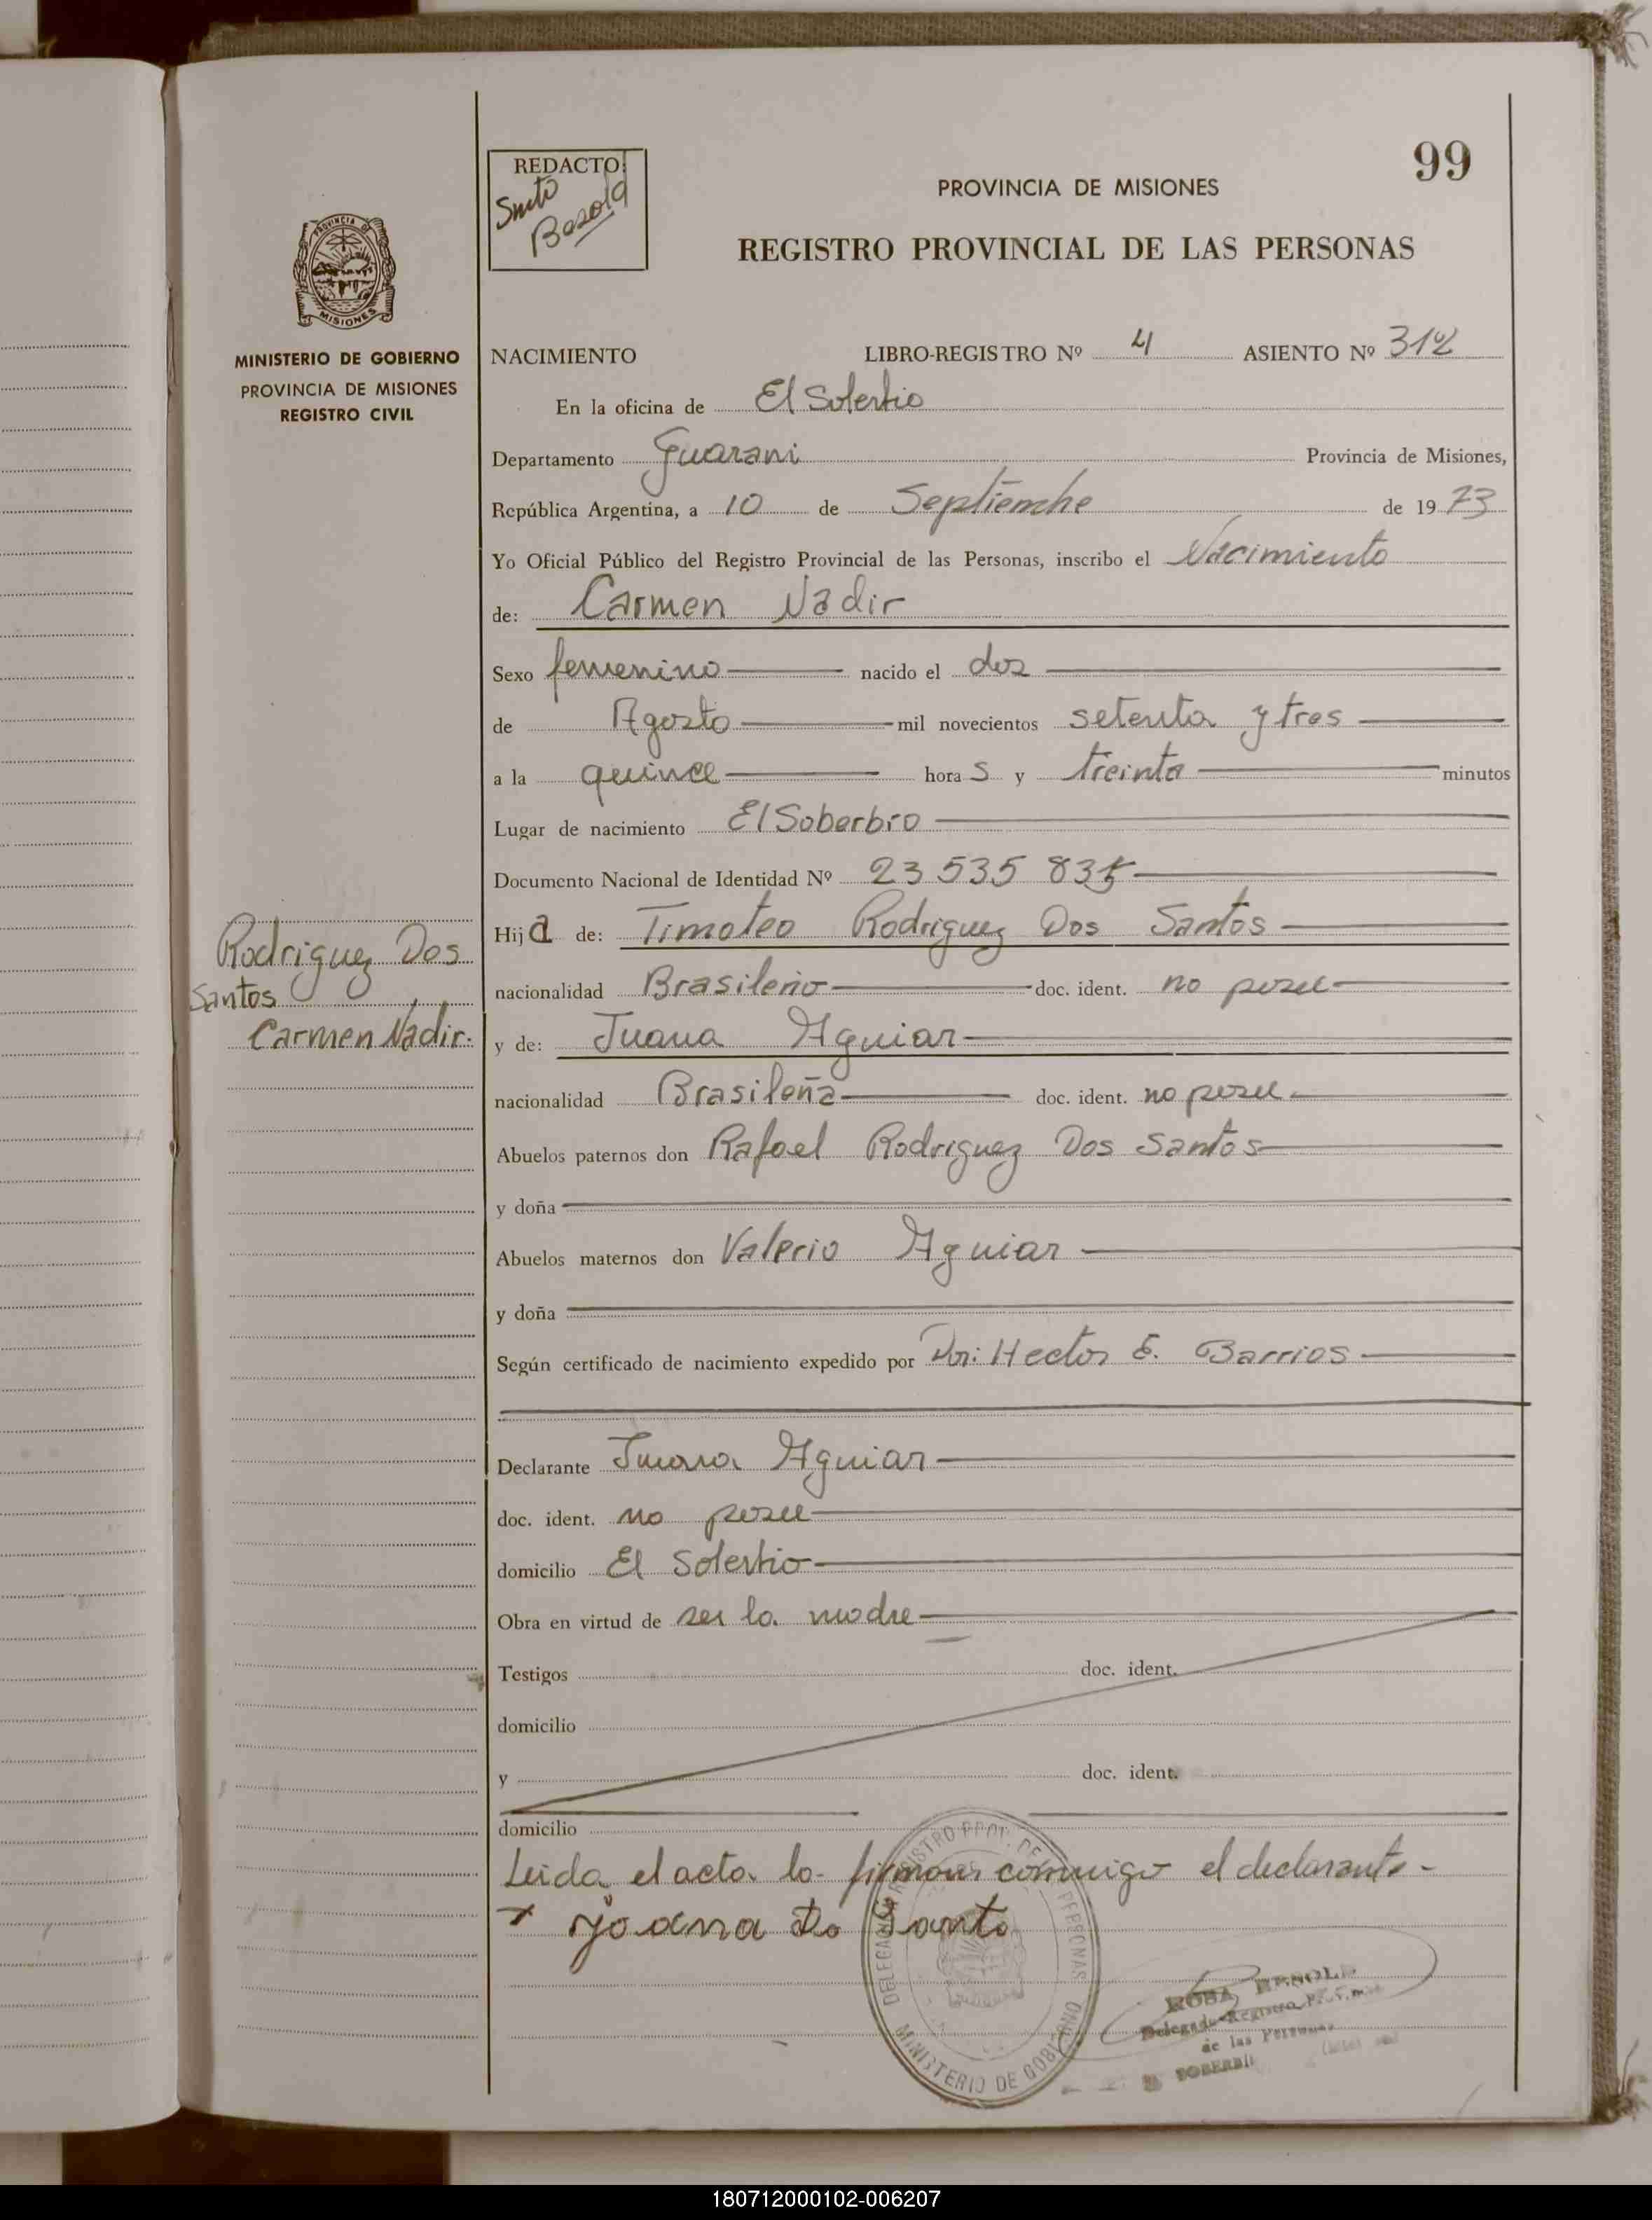 99
REDACTO:
PROVINCIA DE MISIONES
REGISTRO PROVINCIAL DE LAS PERSONAS
PROVINCIA DE
MISIONES
MINISTERIO DE GOBIERNO
PROVINCIA DE MISIONES
REGISTRO CIVIL
NACIMIENTO LIBRO-REGISTRO Nº 4 ASIENTO Nº 312
En la oficina de El Soberbio
Departamento Guarani Provincia de Misiones,
República Argentina, a 10 de Septiembre de 1973
Yo Oficial Público del Registro Provincial de las Personas, inscribo el Nacimiento
de: Carmen Nadir
Sexo femenino nacido el dos
de Agosto mil novecientos setenta y tres
a la quince horas y treinta minutos
Lugar de nacimiento El Soberbio
Documento Nacional de Identidad Nº 23 535 835
Hija de: Timoteo Rodriguez Dos Santos
Rodriguez Dos
Santos,
Carmen Nadir.
nacionalidad Brasileño doc. ident. no posee
y de: Juana Aguiar
nacionalidad Brasileña doc. ident. no posee
Abuelos paternos don Rafael Rodriguez Dos Santos
y doña
Abuelos maternos don Valerio Aguiar
y doña
Según certificado de nacimiento expedido por Dr: Hector E. Barrios
Declarante Juana Aguiar
doc. ident. no posee
domicilio El Soberbio
Obra en virtud de ser la madre
Testigos doc. ident.
domicilio
y doc. ident.
domicilio
Leida el acta la firman conmigo el declarante-
x joana Do Santo
MINISTERIO DE GOBIERNO
de las Personas